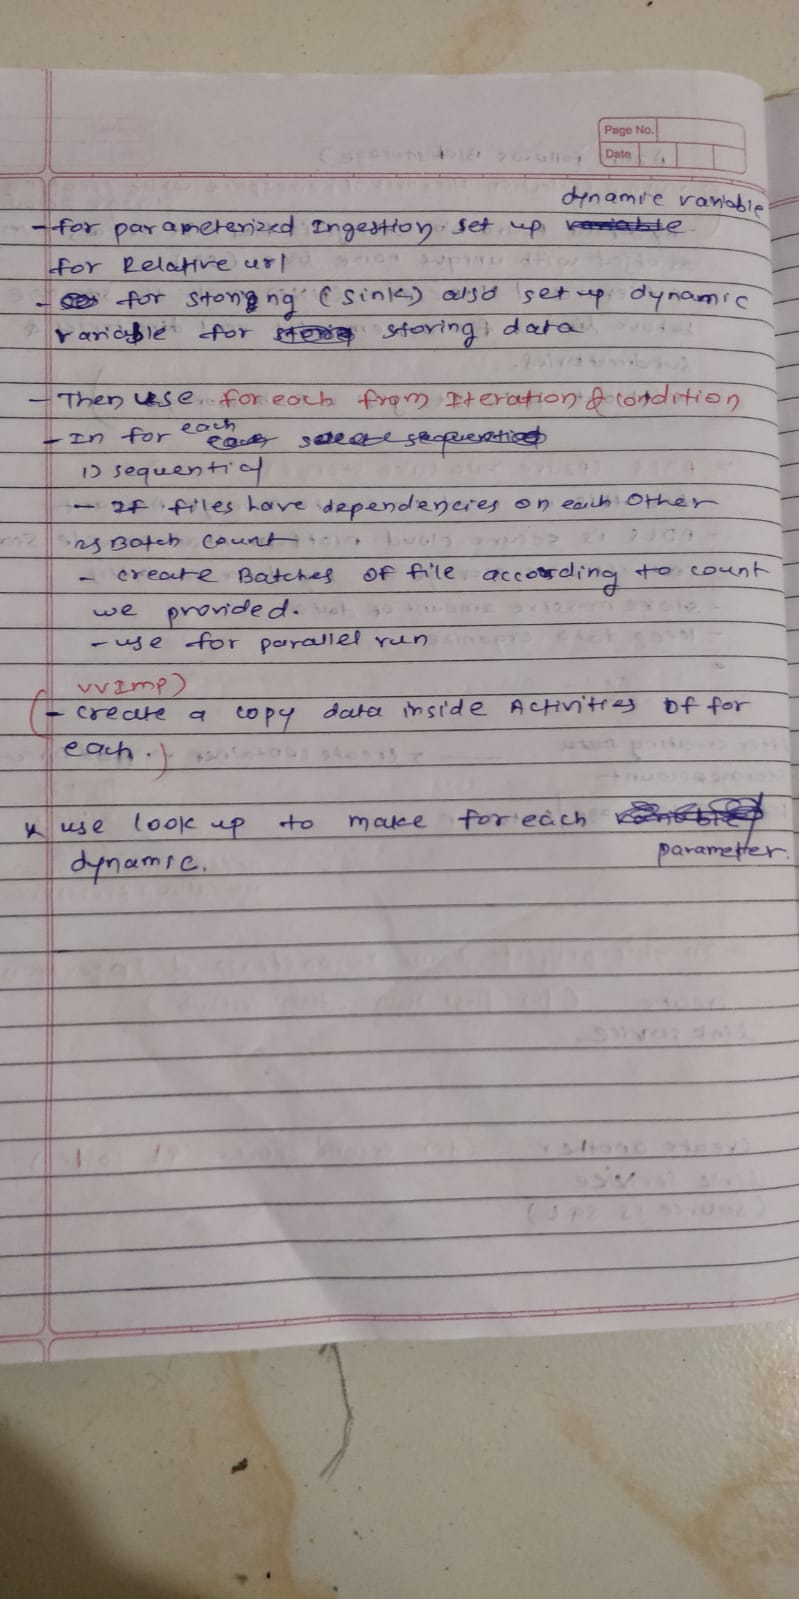 Page No.
Date
dynamic variable
- for parameterized Ingestion set up variable
for Relative url
- for storing (sink) also set up dynamic
variable for storing data
- Then use for each from Iteration & condition
- In for each
1) sequential
- If files have dependencies on each other
2) Batch Count
- create Batches of file according to count
we provided.
- use for parallel run
VVImp)
(- create a copy data inside Activities of for
each.)
* use look up to make for each
dynamic. parameter.